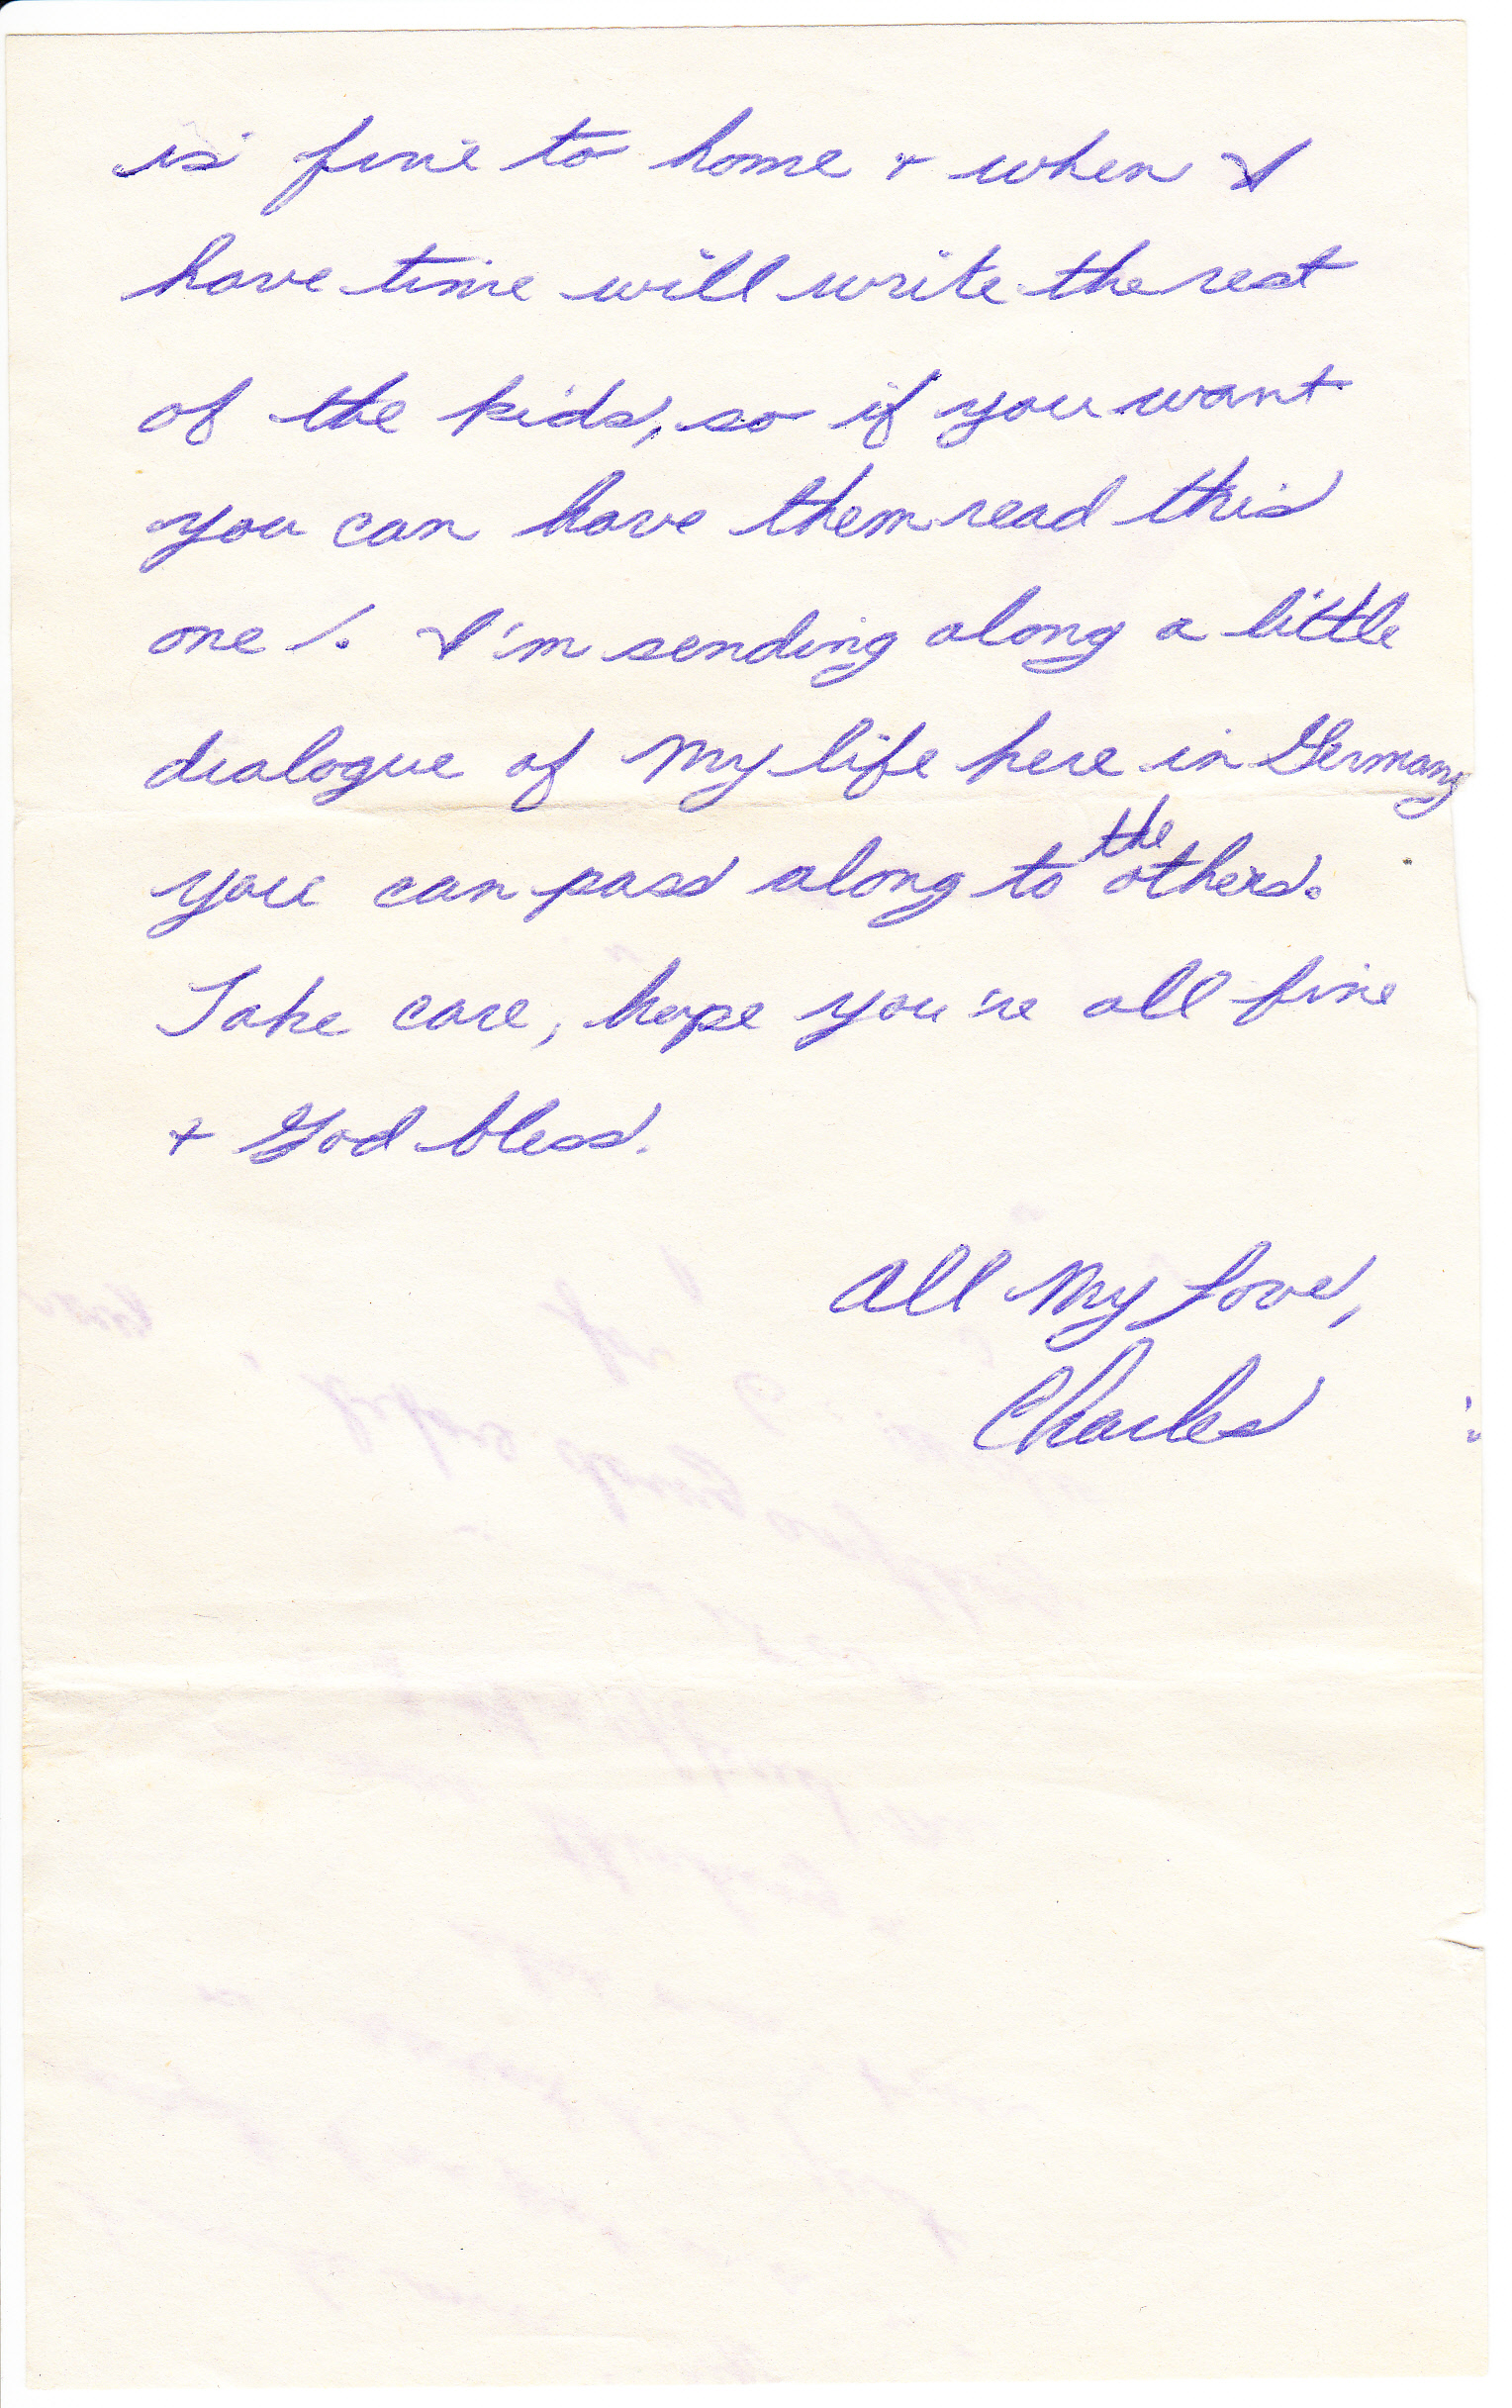 is fine to home + when I
have time will write the rest
of the kids, so if you want
you can have them read this
one /. I'm sending along a little
dialogue of My life here in Germany
you can pass along to the others.
Take care, hope you're all fine
+ God bless.
All My Love,
Charles